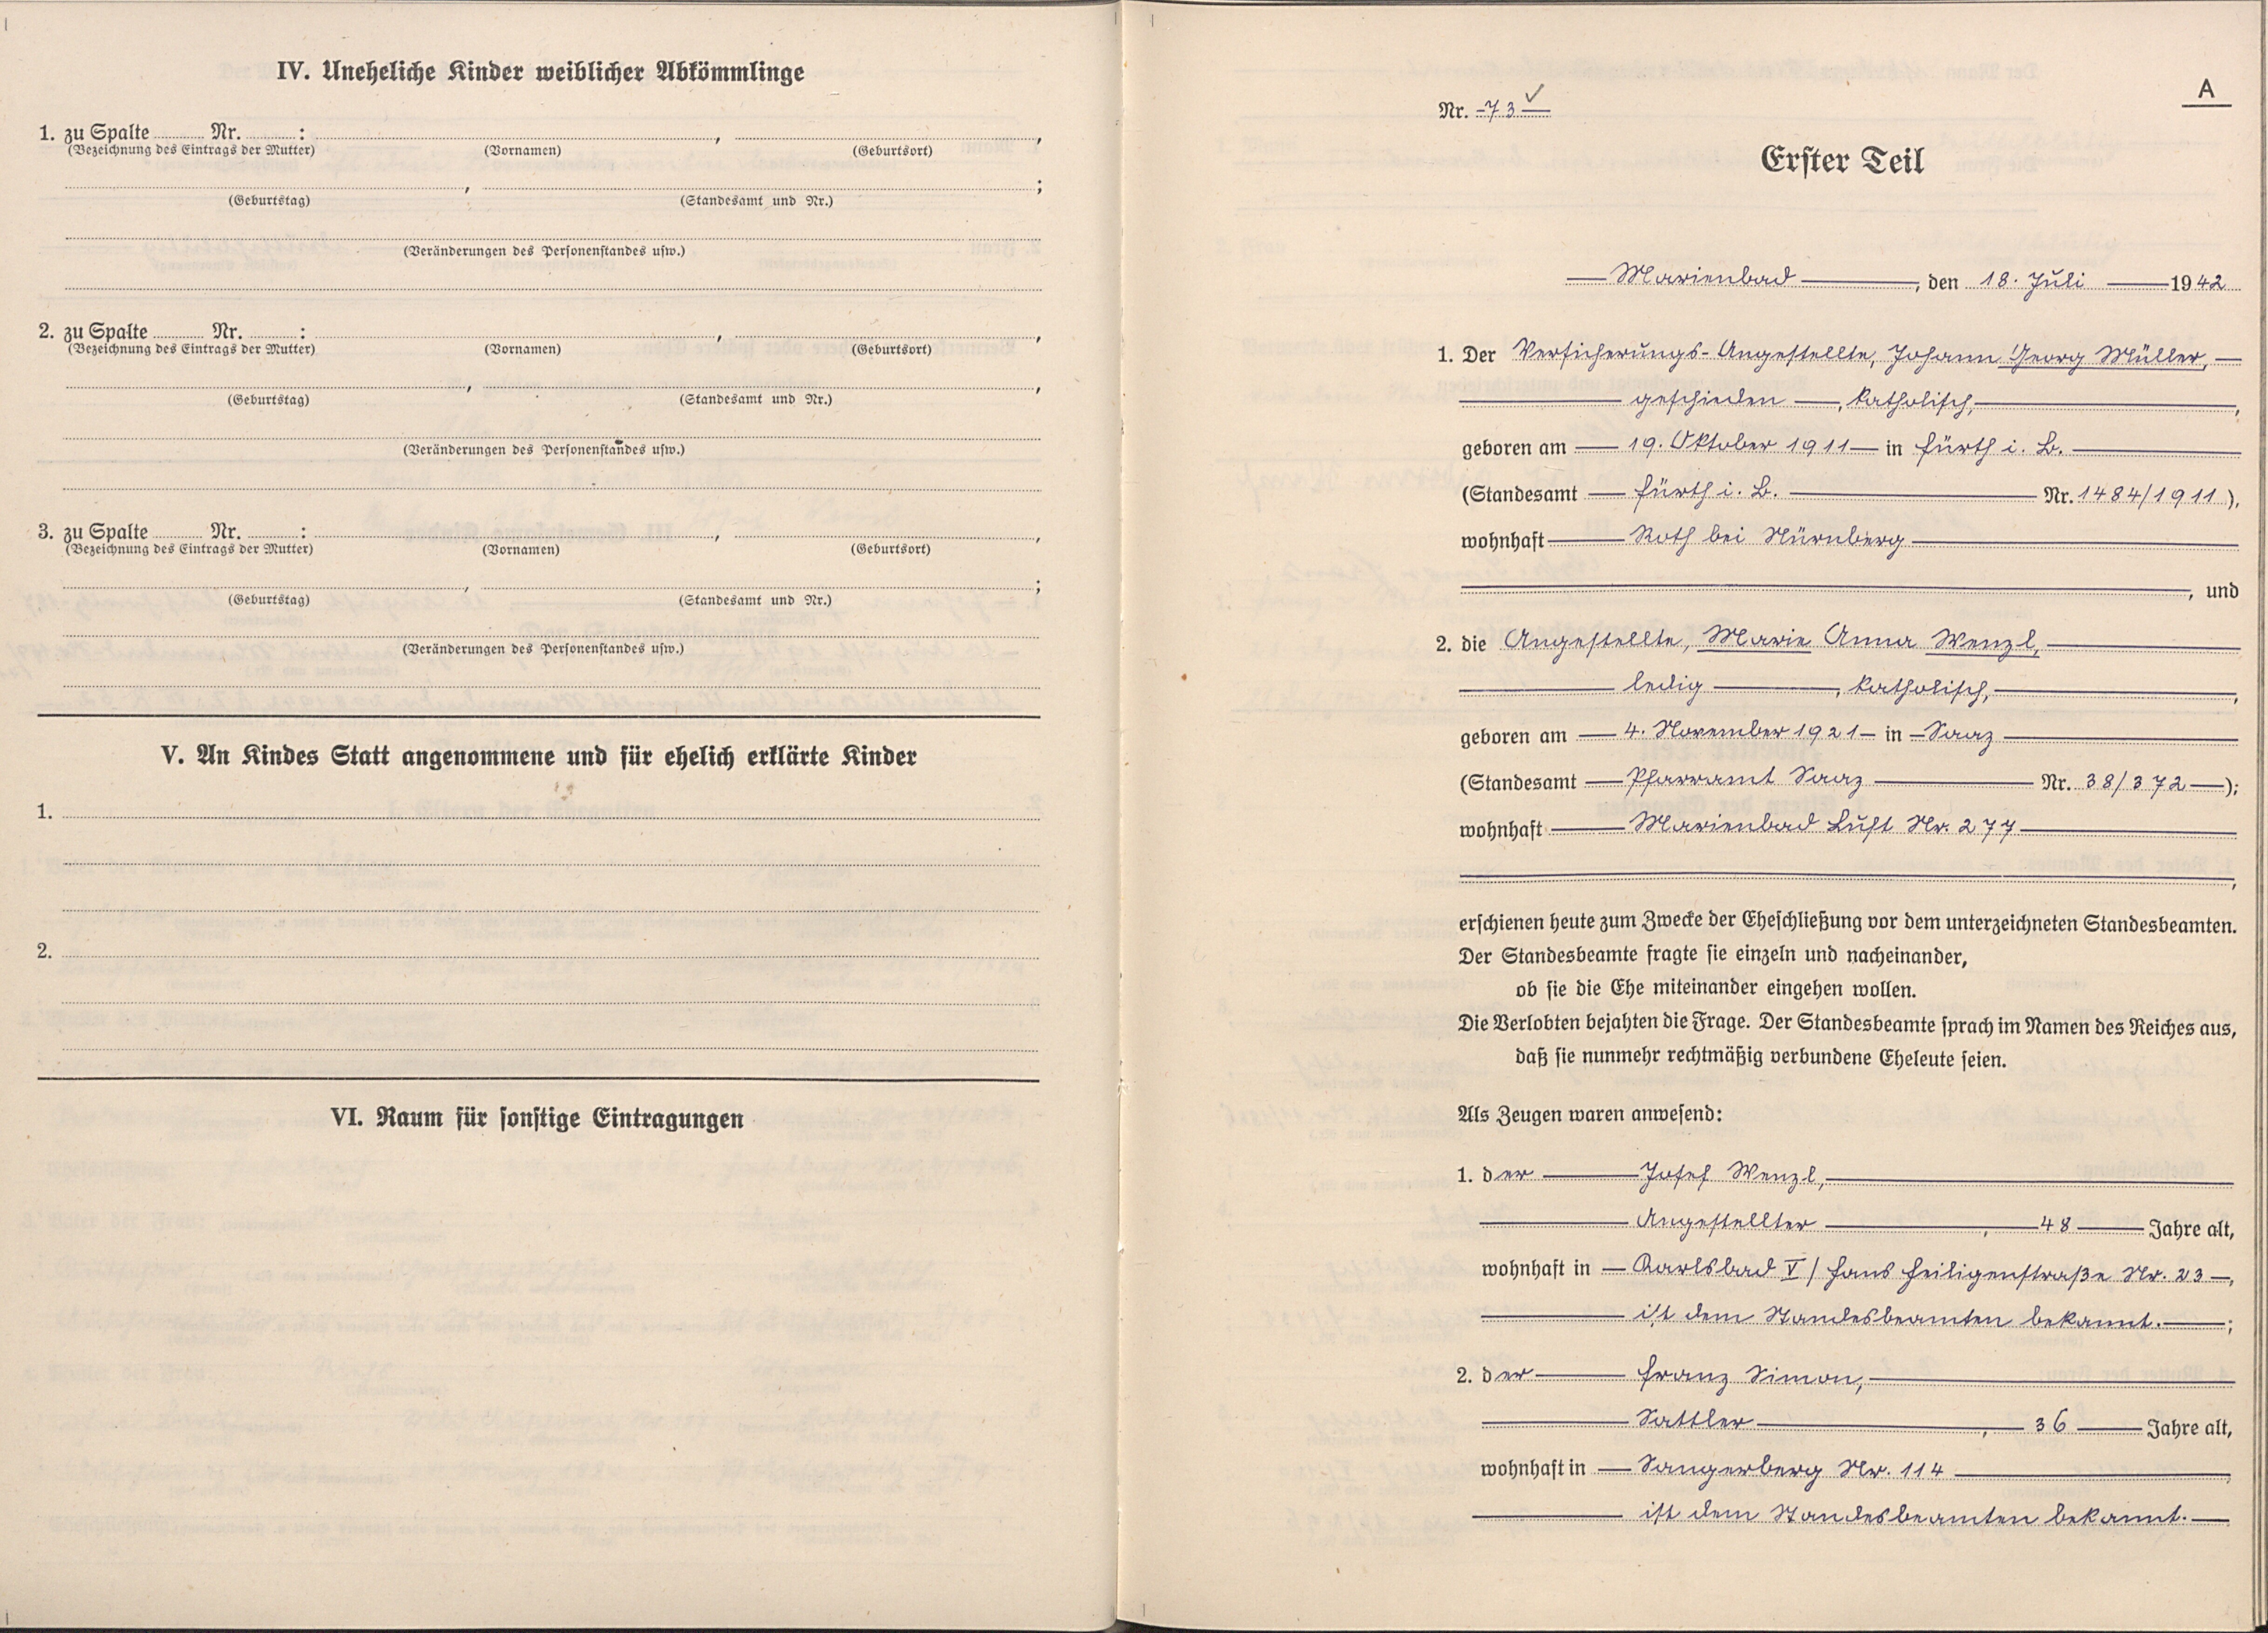 IV. Uneheliche Kinder weiblicher Abkömmlinge
1. zu Spalte Nr. : , ,
(Bezeichnung des Eintrags der Mutter) (Vornamen) (Geburtsort)
, ;
(Geburtstag) (Standesamt und Nr.)
(Veränderungen des Personenstandes usw.)
2. zu Spalte Nr. : , ,
(Bezeichnung des Eintrags der Mutter) (Vornamen) (Geburtsort)
, ,
(Geburtstag) (Standesamt und Nr.)
(Veränderungen des Personenstandes usw.)
3. zu Spalte Nr. : , ,
(Bezeichnung des Eintrags der Mutter) (Vornamen) (Geburtsort)
, ;
(Geburtstag) (Standesamt und Nr.)
(Veränderungen des Personenstandes usw.)
V. An Kindes Statt angenommene und für ehelich erklärte Kinder
1.
2.
VI. Raum für sonstige Eintragungen
A
Nr. 73
Erster Teil
Marienbad, den 18. Juli 1942
1. Der Versicherungs-Angestellte, Johann Georg Müller,
geschieden, katholisch,
geboren am 19. Oktober 1911 in Fürth i. B.
(Standesamt Fürth i. B. Nr. 1484/1911),
wohnhaft Roth bei Nürnberg
, und
2. die Angestellte, Marie Anna Wenzl,
ledig, katholisch,
geboren am 4. November 1921 in Saaz
(Standesamt Pfarramt Saaz Nr. 38/372);
wohnhaft Marienbad Lust Nr. 277
,
erschienen heute zum Zwecke der Eheschließung vor dem unterzeichneten Standesbeamten.
Der Standesbeamte fragte sie einzeln und nacheinander,
ob sie die Ehe miteinander eingehen wollen.
Die Verlobten bejahten die Frage. Der Standesbeamte sprach im Namen des Reiches aus,
daß sie nunmehr rechtmäßig verbundene Eheleute seien.
Als Zeugen waren anwesend:
1. der Josef Wenzl,
Angestellter, 48 Jahre alt,
wohnhaft in Karlsbad V/ Hans Heiligenstraße Nr. 23,
ist dem Standesbeamten bekannt. ;
2. der Franz Simon,
Sattler, 36 Jahre alt,
wohnhaft in Sangerberg Nr. 114
ist dem Standesbeamten bekannt.